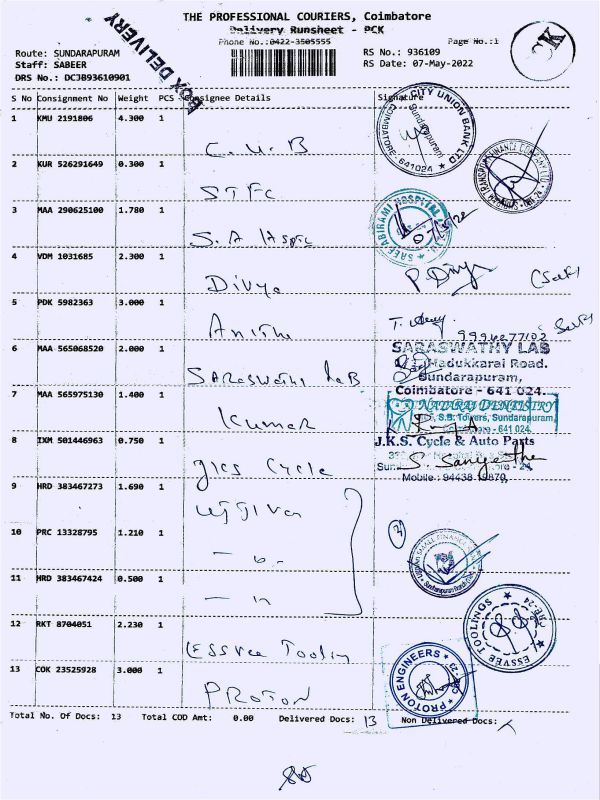 THE PROFESSIONAL COURIERS, Coimbatore
Delivery Runsheet - PCK
Phone No.:0422-3505555
Page No.:1
BOX DELIVERY
Route: SUNDARAPURAM
RS No.: 936109
Staff: SABEER
RS Date: 07-May-2022
DRS No.: DCJB93610901
S No Consignment No Weight PCS Consignee Details Signature
1 KMU 2191806 4.300 1
C.U.B
CITY UNION BANK LTD
Sundarapuram
COIMBATORE 641024
2 KUR 526291649 0.300 1
STFC
3 MAA 290625100 1.780 1
S.A
ABIRAMI HOSPITAL
4 VDM 1031685 2.300 1
Divya
P. Divya
(Self)
5 PDK 5982363 3.000 1
Anitha
T.
Self
6 MAA 565068520 2.000 1
Saraswathi Lab
SARASWATHY LAB
Madukkarai Road.
Sundarapuram,
Coimbatore - 641 024.
7 MAA 565975130 1.400 1
Kumar
NATARAJ DENTISTRY
S.B. Towers, Sundarapuram
Coimbatore - 641 024.
8 IXM 501446963 0.750 1
Jks Cycle
J.K.S. Cycle & Auto Parts
S. Sangeetha
Mobile: 94438
9 HRD 383467273 1.690 1
Ujjivan
10 PRC 13328795 1.210 1
3
SMALL FINANCE
11 HRD 383467424 0.500 1
12 RKT 8704051 2.230 1
ESSVEE Tooling
ESSVEE TOOLINGS
13 COK 23525928 3.000 1
PROTON
PROTON ENGINEERS
Total No. Of Docs: 13 Total COD Amt: 0.00 Delivered Docs: 13 Non Delivered Docs: